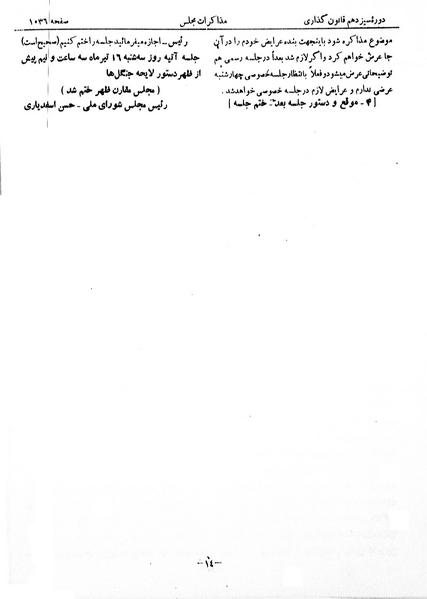 دوره سیزدهم قانون گذاری
مذاکرات مجلس
صفحه ۱۰۳۶
موضوع مذاکره شود باینجهت بنده عرایض خودم را در آن
جا عرض خواهم کرد و اگر لازم شد بعداً در جلسه رسمی هم
توضیحاتی عرض میشود و فعلاً با انتظار جلسه خصوصی چهارشنبه
عرضی ندارم و عرایض لازم در جلسه خصوصی خواهد شد.
[ ۴ - موقع و دستور جلسه بعد - ختم جلسه ]
رئیس - اجازه میفرمائید جلسه را ختم کنیم (صحیح است)
جلسه آتیه روز سه‌شنبه ۱۶ تیرماه سه ساعت و نیم پیش
از ظهر دستور لایحه جنگل‌ها
( مجلس مقارن ظهر ختم شد )
رئیس مجلس شورای ملی - حسن اسفندیاری
-۱٤-